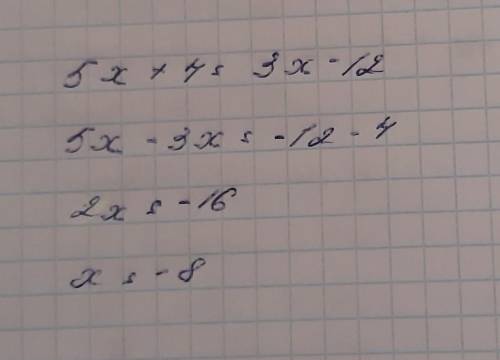 5x + 4 = 3x - 12
5x - 3x = -12 - 4
2x = -16
x = -8